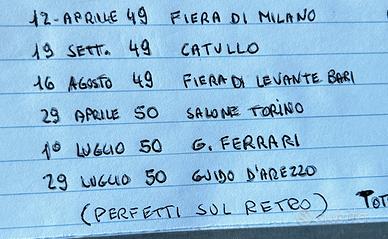 12-APRILE 49 FIERA DI MILANO
19 SETT. 49 CATULLO
16 AGOSTO 49 FIERA DI LEVANTE BARI
29 APRILE 50 SALONE TORINO
1º LUGLIO 50 G. FERRARI
29 LUGLIO 50 GUIDO D'AREZZO
(PERFETTI SUL RETRO) TOT